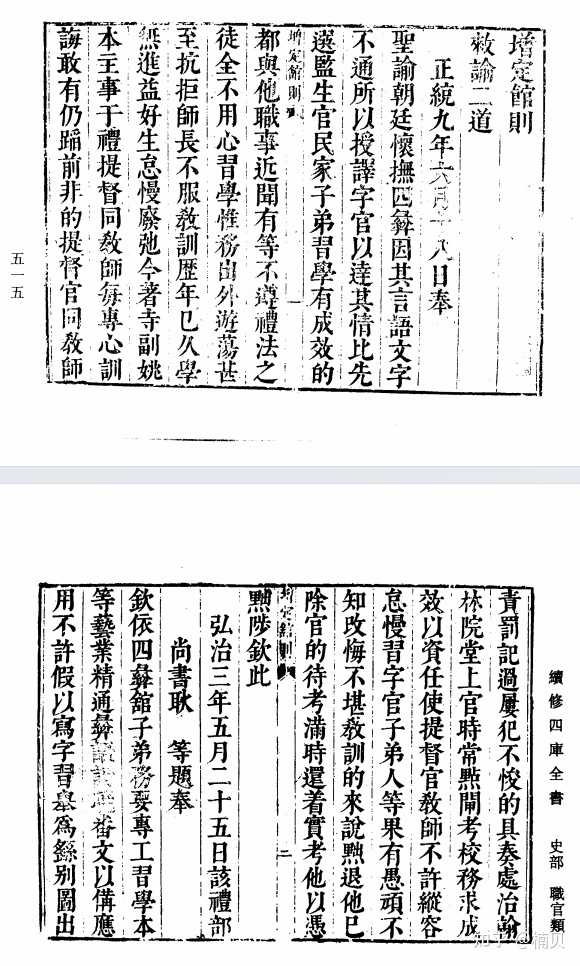 增定館則
敕諭二道
正統九年六月十八日奉
聖諭朝廷懷撫四彝因其言語文字
不通所以授譯字官以達其情比先
選監生官民家子弟習學有成效的
增定館則 一
都與他職事近聞有等不遵禮法之
徒全不用心習學惟務出外遊蕩甚
至抗拒師長不服教訓歷年已久學
無進益好生怠慢廢弛今著寺副姚
本主事于禮提督同教師每專心訓
誨敢有仍蹈前非的提督官同教師
五一五
責罰記過屢犯不悛的具奏處治諭
林院堂上官時常點閘考校務求成
效以資任使提督官教師不許縱容
怠慢習字官子弟人等果有愚頑不
知改悔不堪教訓的來說黜退他已
除官的待考滿時還着實考他以憑
增定館則 二
黜陟欽此
弘治三年五月二十五日該禮部
尚書耿 等題奉
欽依四彝館子弟務要專工習學本
等藝業精通彝語番文以備應
用不許假以寫字習舉為繇別圖出
續修四庫全書 史部 職官類
知乎 @楠贝